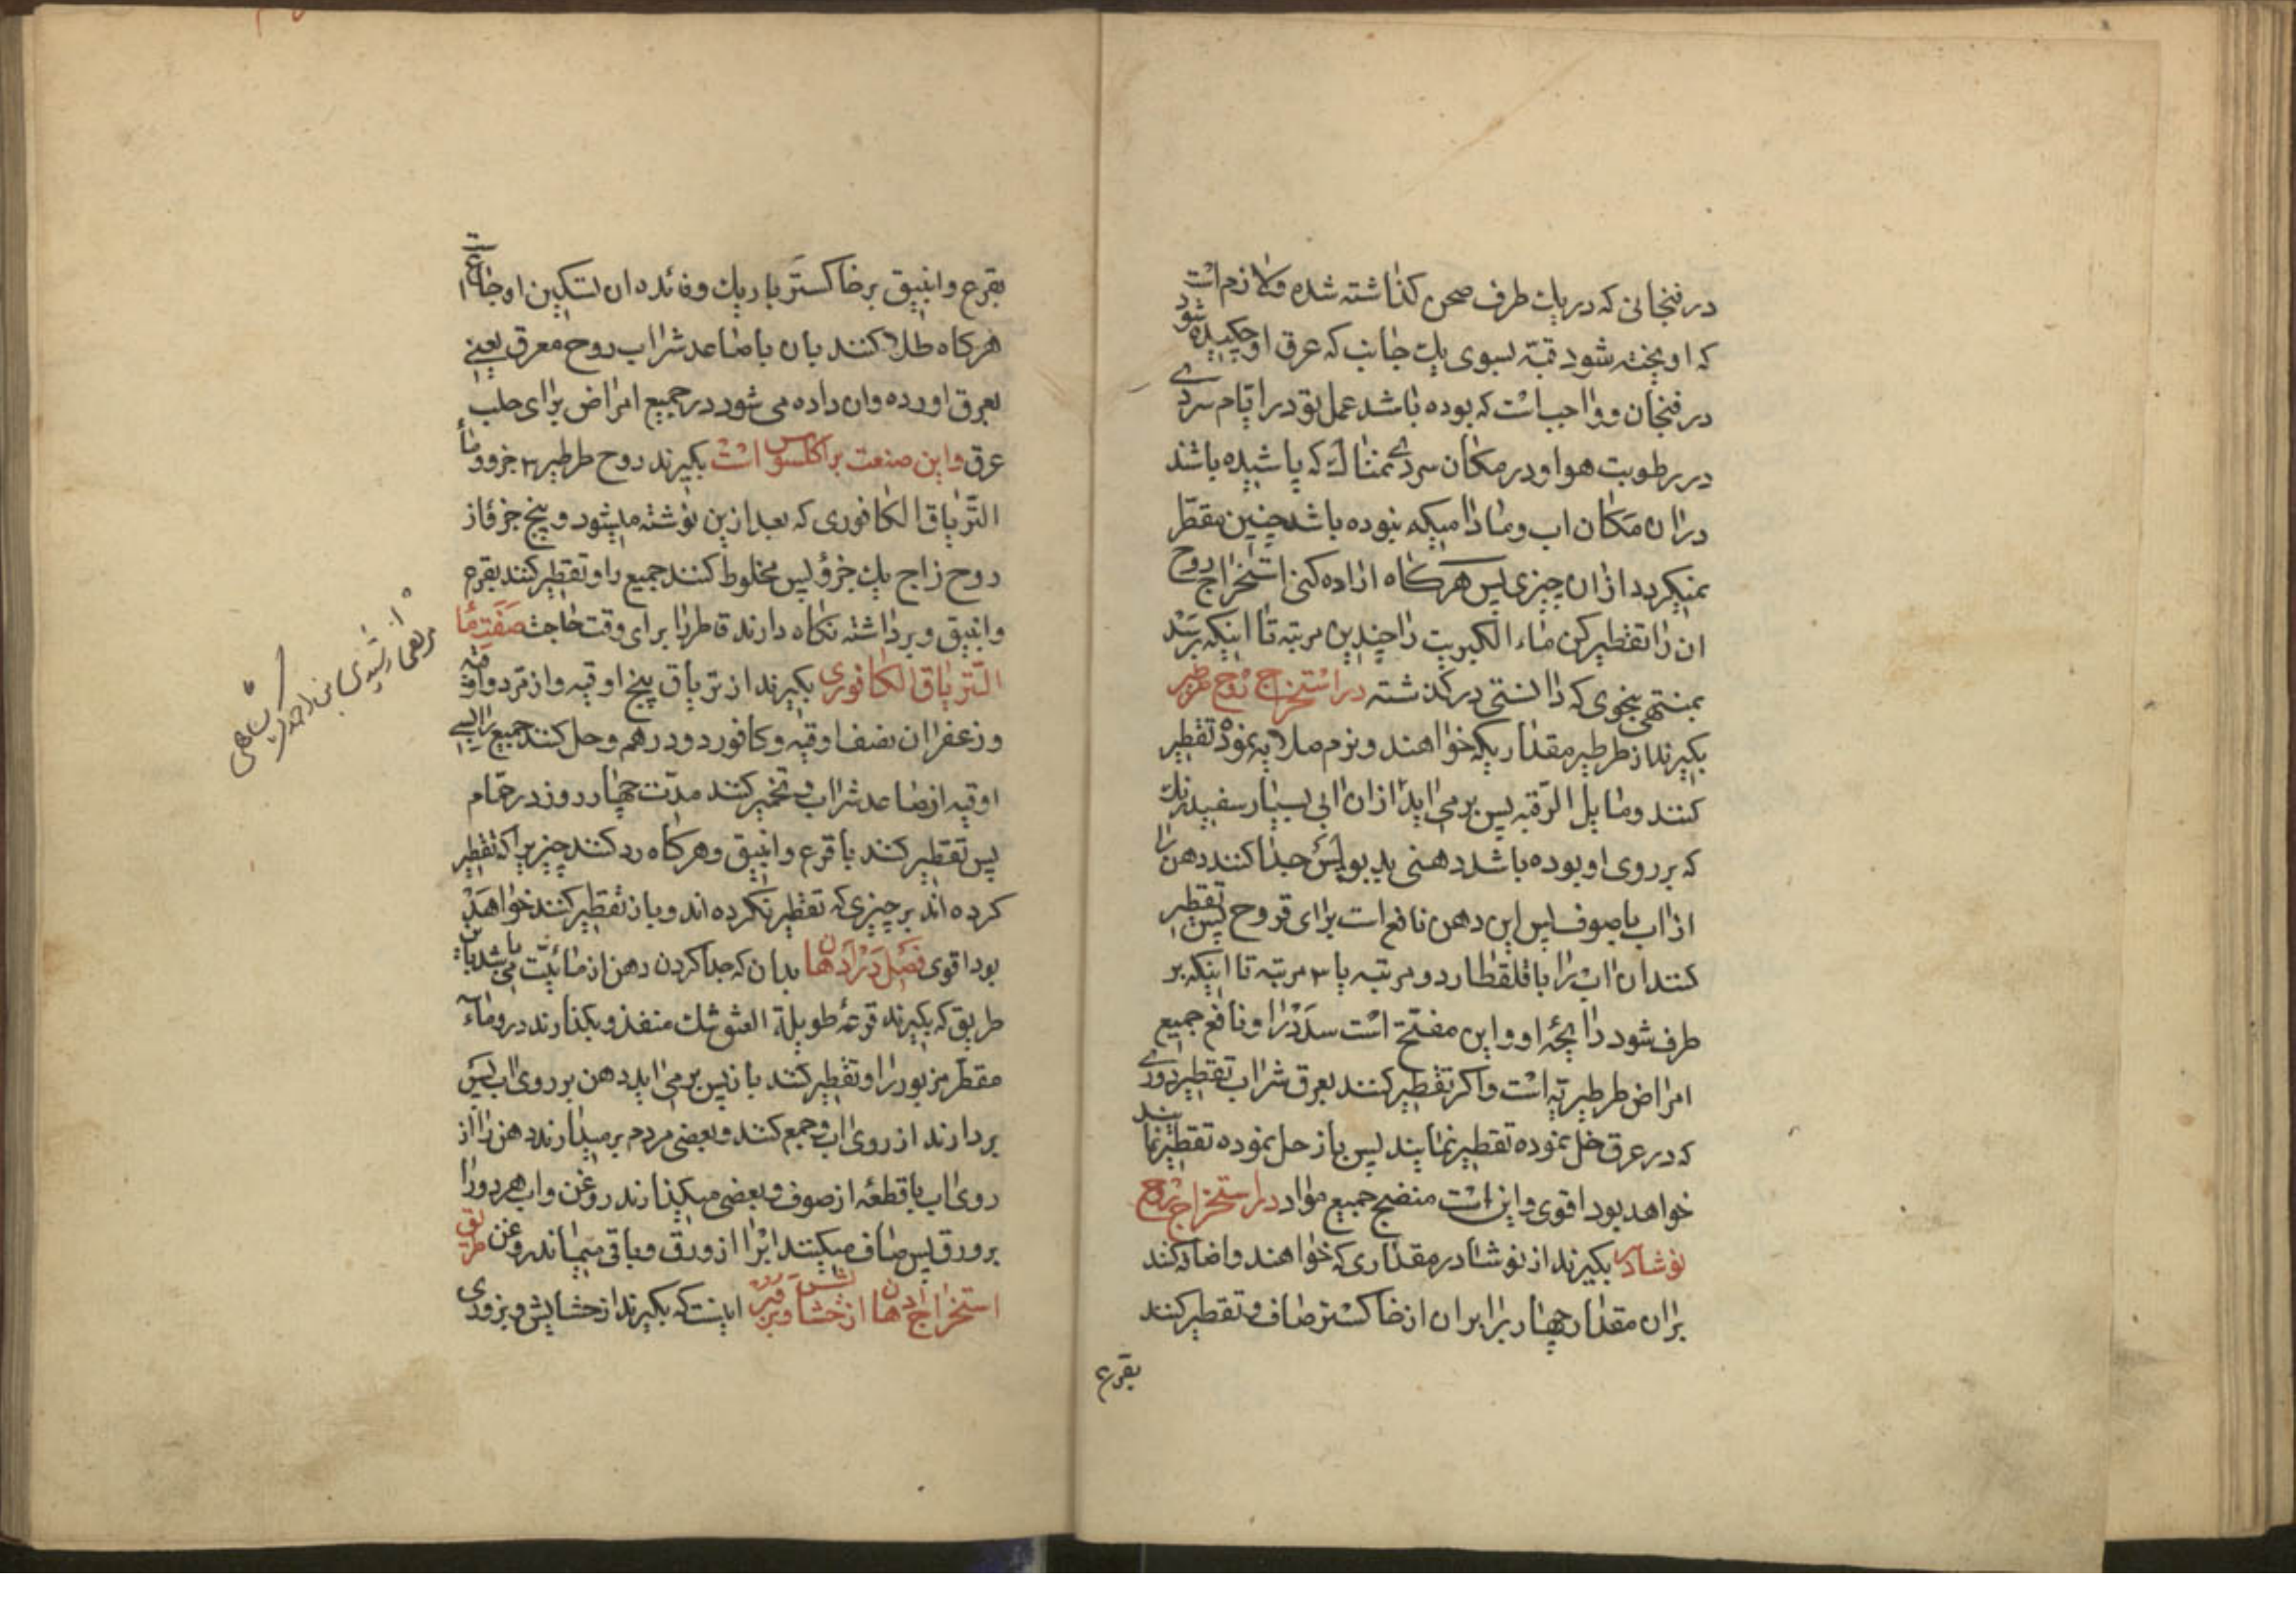 در فنجانی که در یک طرف صحن کذاشته شده ولازم است
که اویخته شود قبّه بسوی یک جانب که عرق او چکیده شود
در فنجان وواجب است که بوده باشد عمل تو در ایّام سردی
در برطوبت هوا ودر مکان سردی بمثابۀ که پاشیده باشد
در ان مکان اب ومادامیکه نبوده باشد چنین مقطّر
نمیکردد ازان چیزی پس هرکاه اراده کنی استخراج روح
ان را تقطیر کن ماء الکبریت را چندین مرتبه تا اینکه برسد
بمنتهی بنحوی که دانستی در کذشته در استخراج روح طرطیر
بکیرند از طرطیر مقداریکه خواهند ونرم ملایه نموده تقطیر
کنند ومایل الرّقبه پس برمی اید ازان ابی بسیار سفید رنک
که بر روی او بوده باشد دهنی بدبو پس جدا کنند دهن را
از اب باصوف پس این دهن نافع است برای قروح پس تقطیر
کنند ان اب را باقلقطار دو مرتبه یا ۳ مرتبه تا اینکه بر
طرف شود رایحۀ او واین مفتّح است سدد را ونافع جمیع
امراض طرطیریّه است واکر تقطیر کنند بعرق شراب تقطیر دوری
که در عرق حل نموده تقطیر نمایند پس باز حل نموده تقطیر نمایند
خواهد بود اقوی واین است منضج جمیع مواد در استخراج روح
نوشادر بکیرند از نوشادر مقداری که خواهند واضافه کنند
بران مقدار چهار برابر ان از خاکستر صاف وتقطیر کنند
بقرع
بقرع وانبیق بر خاکستر یا ریک وفائده ان تسکین اوجاع است
هرکاه طلا کنند بان باصاعد شراب روح معرق یعنی
بعرق اورده وان داده می شود در جمیع امراض برای جلب
عرق واین صنعت براکلسوس است بکیرند روح طرطیر ۳ جزو وماء
التّریاق الکافوری که بعد ازین نوشته میشود وپنج جزؤ از
روح زاج یک جزؤ پس مخلوط کنند جمیع را وتقطیر کنند بقرع
وانبیق وبرداشته نکاه دارند قاطر را برای وقت حاجت صفت ماء
التریاق الکافوری بکیرند از تریاق پنج اوقیه واز مرّ دو اوقیه
وزعفران نصف اوقیه وکافور دو درهم وحل کنند جمیع را
اوقیه از صاعد شراب وتخمیر کنند مدّت چهار روز در حمّام
پس تقطیر کنند باقرع وانبیق وهرکاه رد کنند چیزیرا که تقطیر
کرده اند بر چیزی که تقطیر نکرده اند وباز تقطیر کنند خواهد
بود اقوی فصل در ادهان ها بدان که جدا کردن دهن از مائیّت می باشد باین
طریق که بکیرند قرعۀ طویلة العنق تنک منفذ وبکذارند در وماء
مقطّر مزبور را وتقطیر کنند باز پس برمی اید دهن بر روی اب پس
بردارند از روی اب وجمع کنند وبعضی مردم برمیدارند دهن را از
روی اب باقطعۀ از صوف وبعضی میکذارند روغن واب هر دو را
بر ورق پس صاف میکنند اب را از ورق وباقی میماند روغن طریق
استخراج ادهان ها از حشایش وبزور اینست که بکیرند از حشایش وبزوری